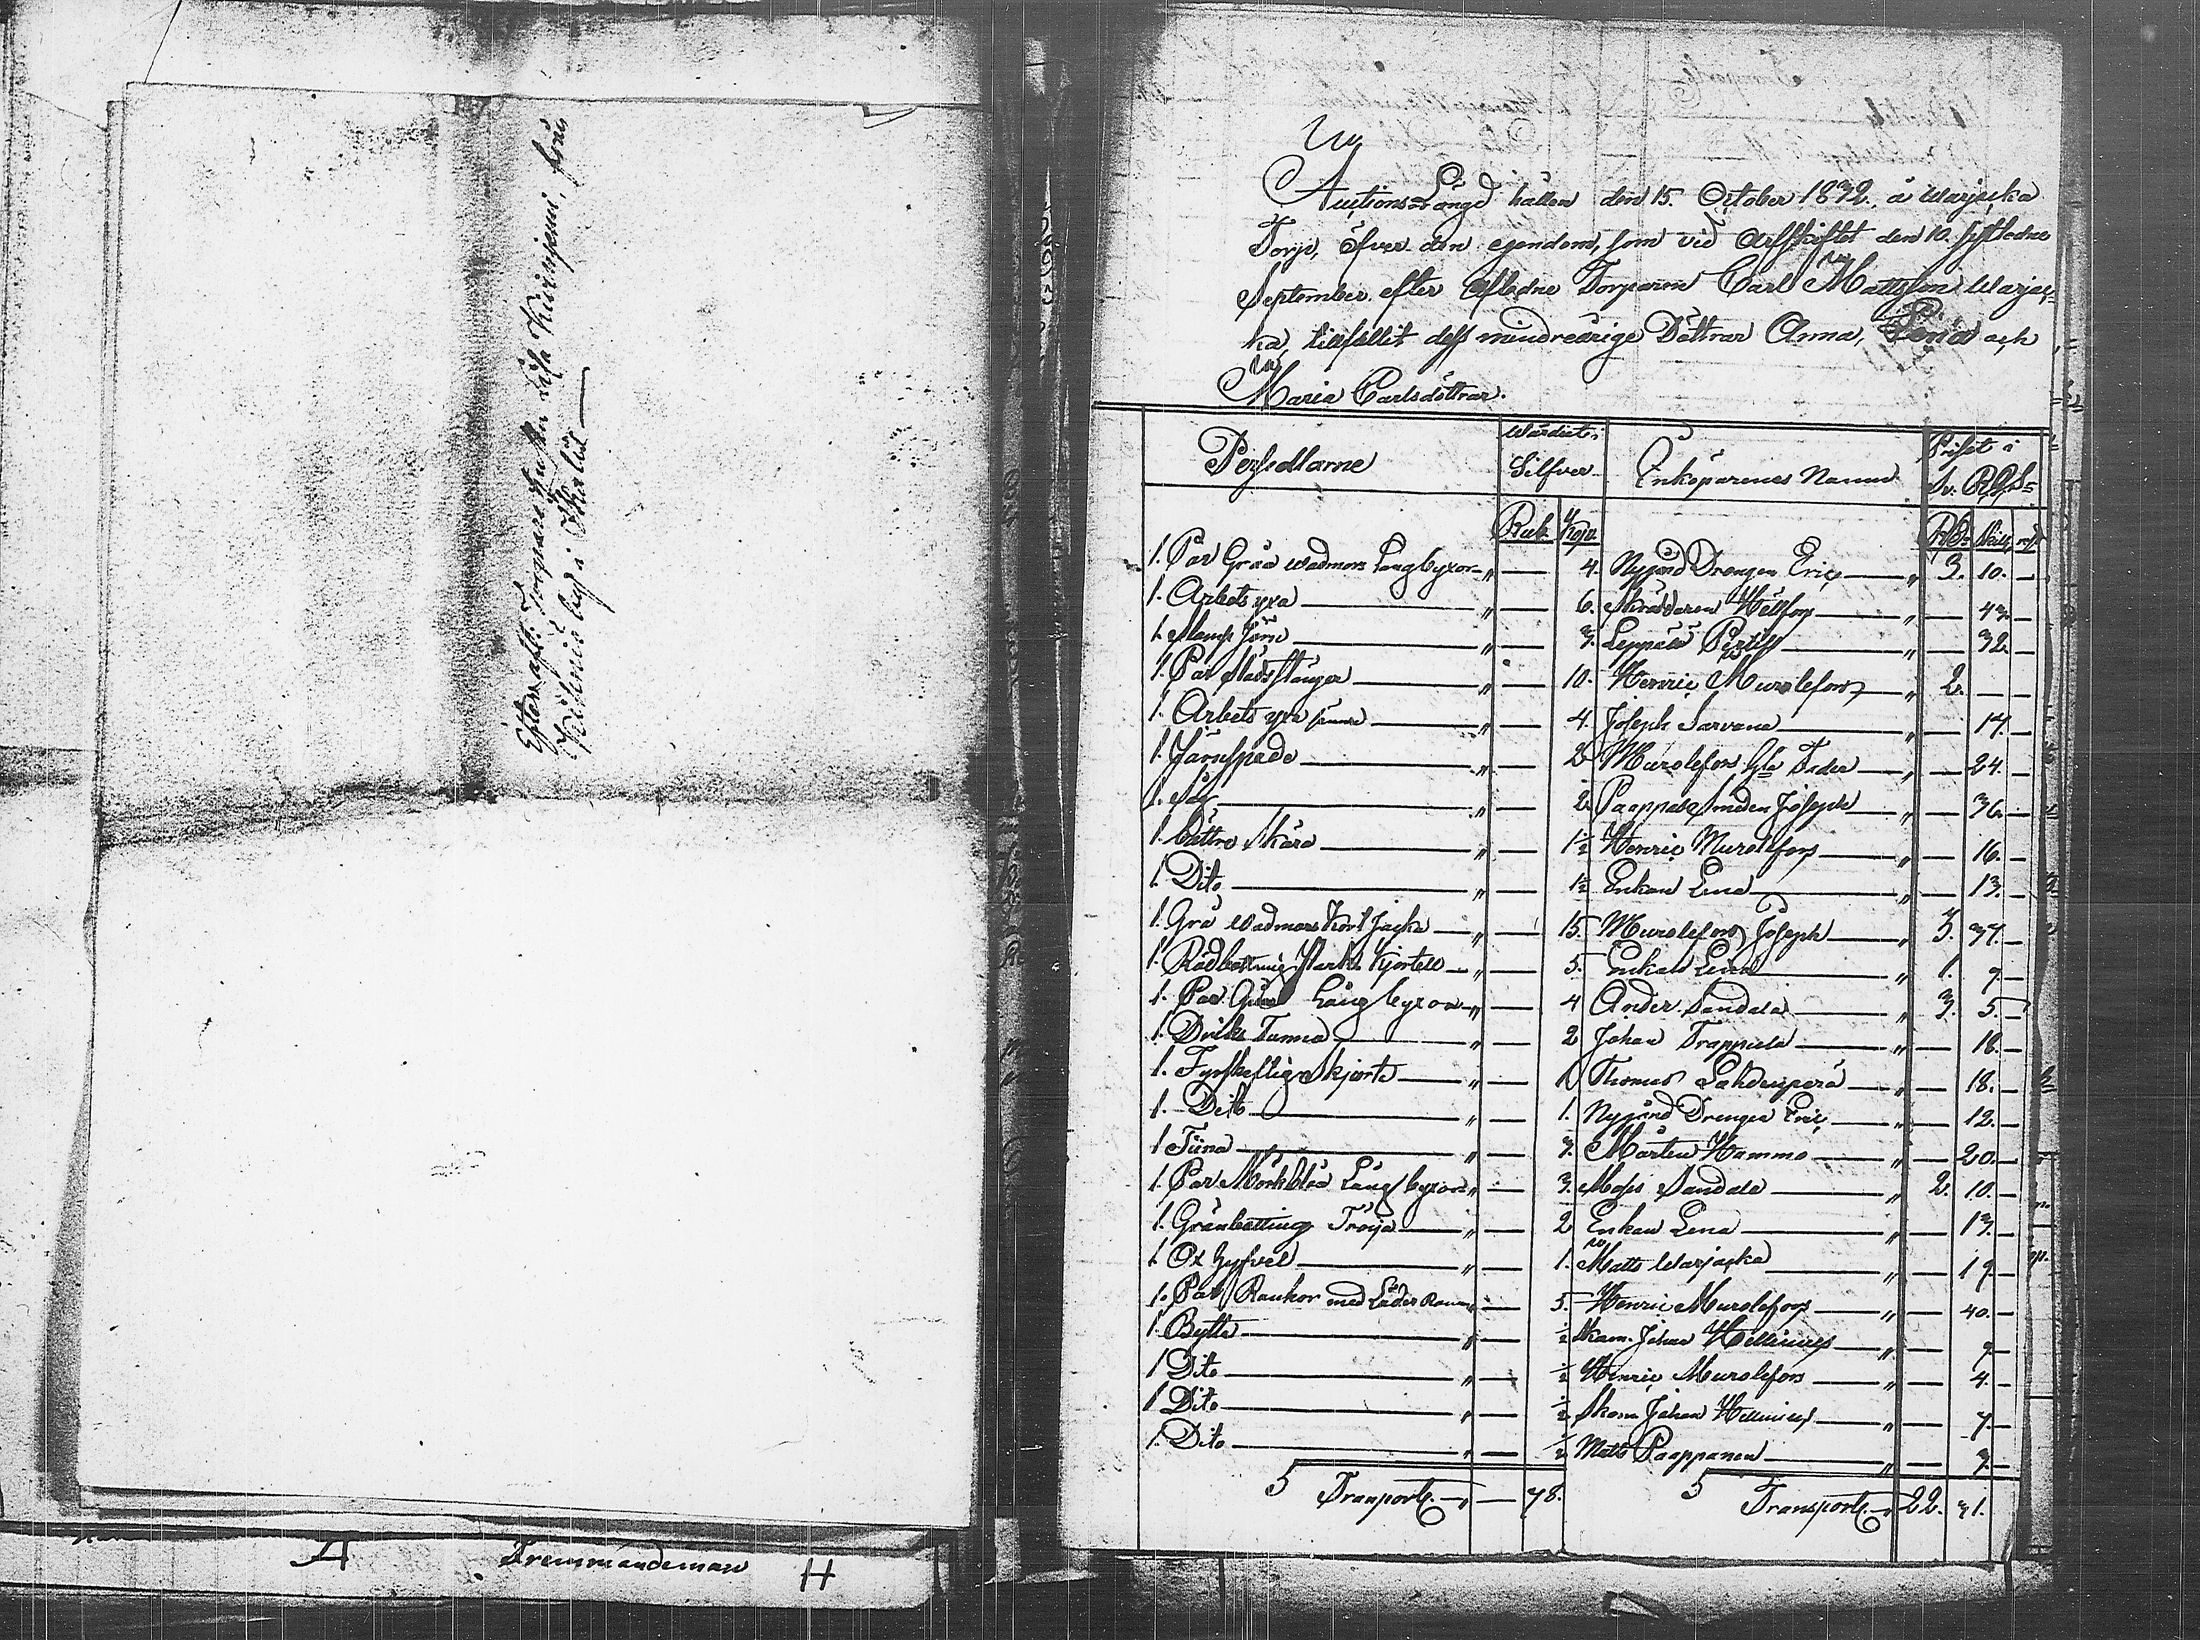 Efter afl: Torpare Hustru Lisa Kirinjemi, från
Kitinoja by i Skalis
Fremmandeman
Auctions Längd hållen den 15. October 1832, å Warjuska
Torp, öfver den egendom, som vid Arfskiftet den 10. sistledne
September efter Afledne Torparen Carl Mattsson Warjus-
ka, tillfallit dess minderårige Döttrar Anna, Lena och
Maria Carlsdöttrar.
Persedlarne Wärdet i Silfver. Inköparenes Namn Priset i Sv. RGS=
Rub. Kop. Rd. Skill. rst
1. Par Gråa wadmars Långbyxor " — 4. Nygård Drengen Eric " 3. 10. —
1. Arbets yxa " — 6. Skräddaren Hällfors " — 43. —
1. Stamp Järn " — 3. Leppälä Pertill " — 32. —
1. Par Släds stänger " — 10. Henric Murolefors " 2. — —
1. Arbets yxa sämre " — 4. Joseph Sarvana " 14. —
1. Järnspade " — 2 Murolefors Gla Fader " — 24. —
1. Såg " — 2. Paappala Smeden Joseph " — 36. —
1. bättre Skära " — 1½ Henric Murolefors " — 16. —
1. Dito " — 1½ Enkan Lena " — 13. —
1. Grå Wadmars Kort Jacka " — 15. Murolefors Joseph " 3. 37. —
1. Rödbottnig Kjortell " — 5. Enkan Lena " 1. 9. —
1. Par Gråa Långbyxor " — 4 Ander Sandala " 3. 5. —
1. Dricks Tunna " — 2 Johan Trappiela " — 18. —
1. Fyrskeftig Skjorte " — 1 Thomas Lahdenperä " — 18. —
1. Dito " — 1. Nygård Drengen Eric " — 12. —
1 Tiina " — 3. Mårten Hammo " — 20. —
1. Par Mörkblåa Långbyxor " — 3. Moses Sandala " 2. 10. —
1. Grönbottnig Tröja " — 2 Enkan Lena " — 13. —
1. Ox Hyfvel " — 1. Matts Warjuska " — 19. —
1. Par Rankor med Läder Remmar " — 5. Henric Murolefors " — 40. —
1. Bytta " — ½ Skom. Johan Hellenius " — 9 —
1 Dito " — ½ Henric Murolefors " — 4. —
1 Dito " — ½ Skom Johan Hellenius " — 7. —
1. Dito " — ½ Matts Paappanen " — 9. —
Transport. " — 78. Transport. " 22. 31.